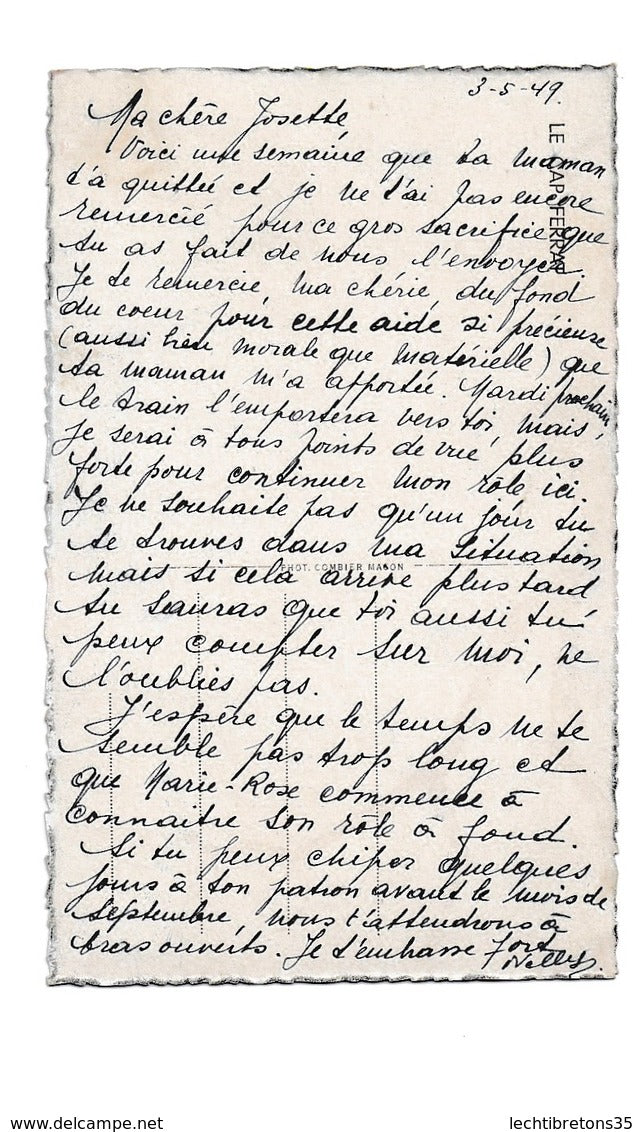 3-5-49.
Ma chère Josette
Voici une semaine que ta maman
t'a quittée et je ne t'ai pas encore
remercié pour ce gros sacrifice que
tu as fait de nous l'envoyer.
Je te remercie, ma chérie, du fond
du coeur pour cette aide si précieuse
(aussi bien morale que matérielle) que
ta maman m'a apportée. Mardi prochain
le train l'emportera vers toi, mais,
je serai à tous points de vue, plus
forte pour continuer mon rôle ici.
Je ne souhaite pas qu'un jour tu
te trouves dans ma situation
PHOT. COMBIER MACON
mais si cela arrive plus tard
tu sauras que toi aussi tu
peux compter sur moi, ne
l'oublies pas.
J'espère que le temps ne te
semble pas trop long et
que Marie-Rose commence à
connaitre son rôle à fond.
Si tu peux chiper quelques
jours à ton patron avant le mois de
septembre, nous t'attendrons à
bras ouverts. Je t'embrasse fort
Nelly.
LE CAP FERRAT
delcampe.net
lechtibretons35